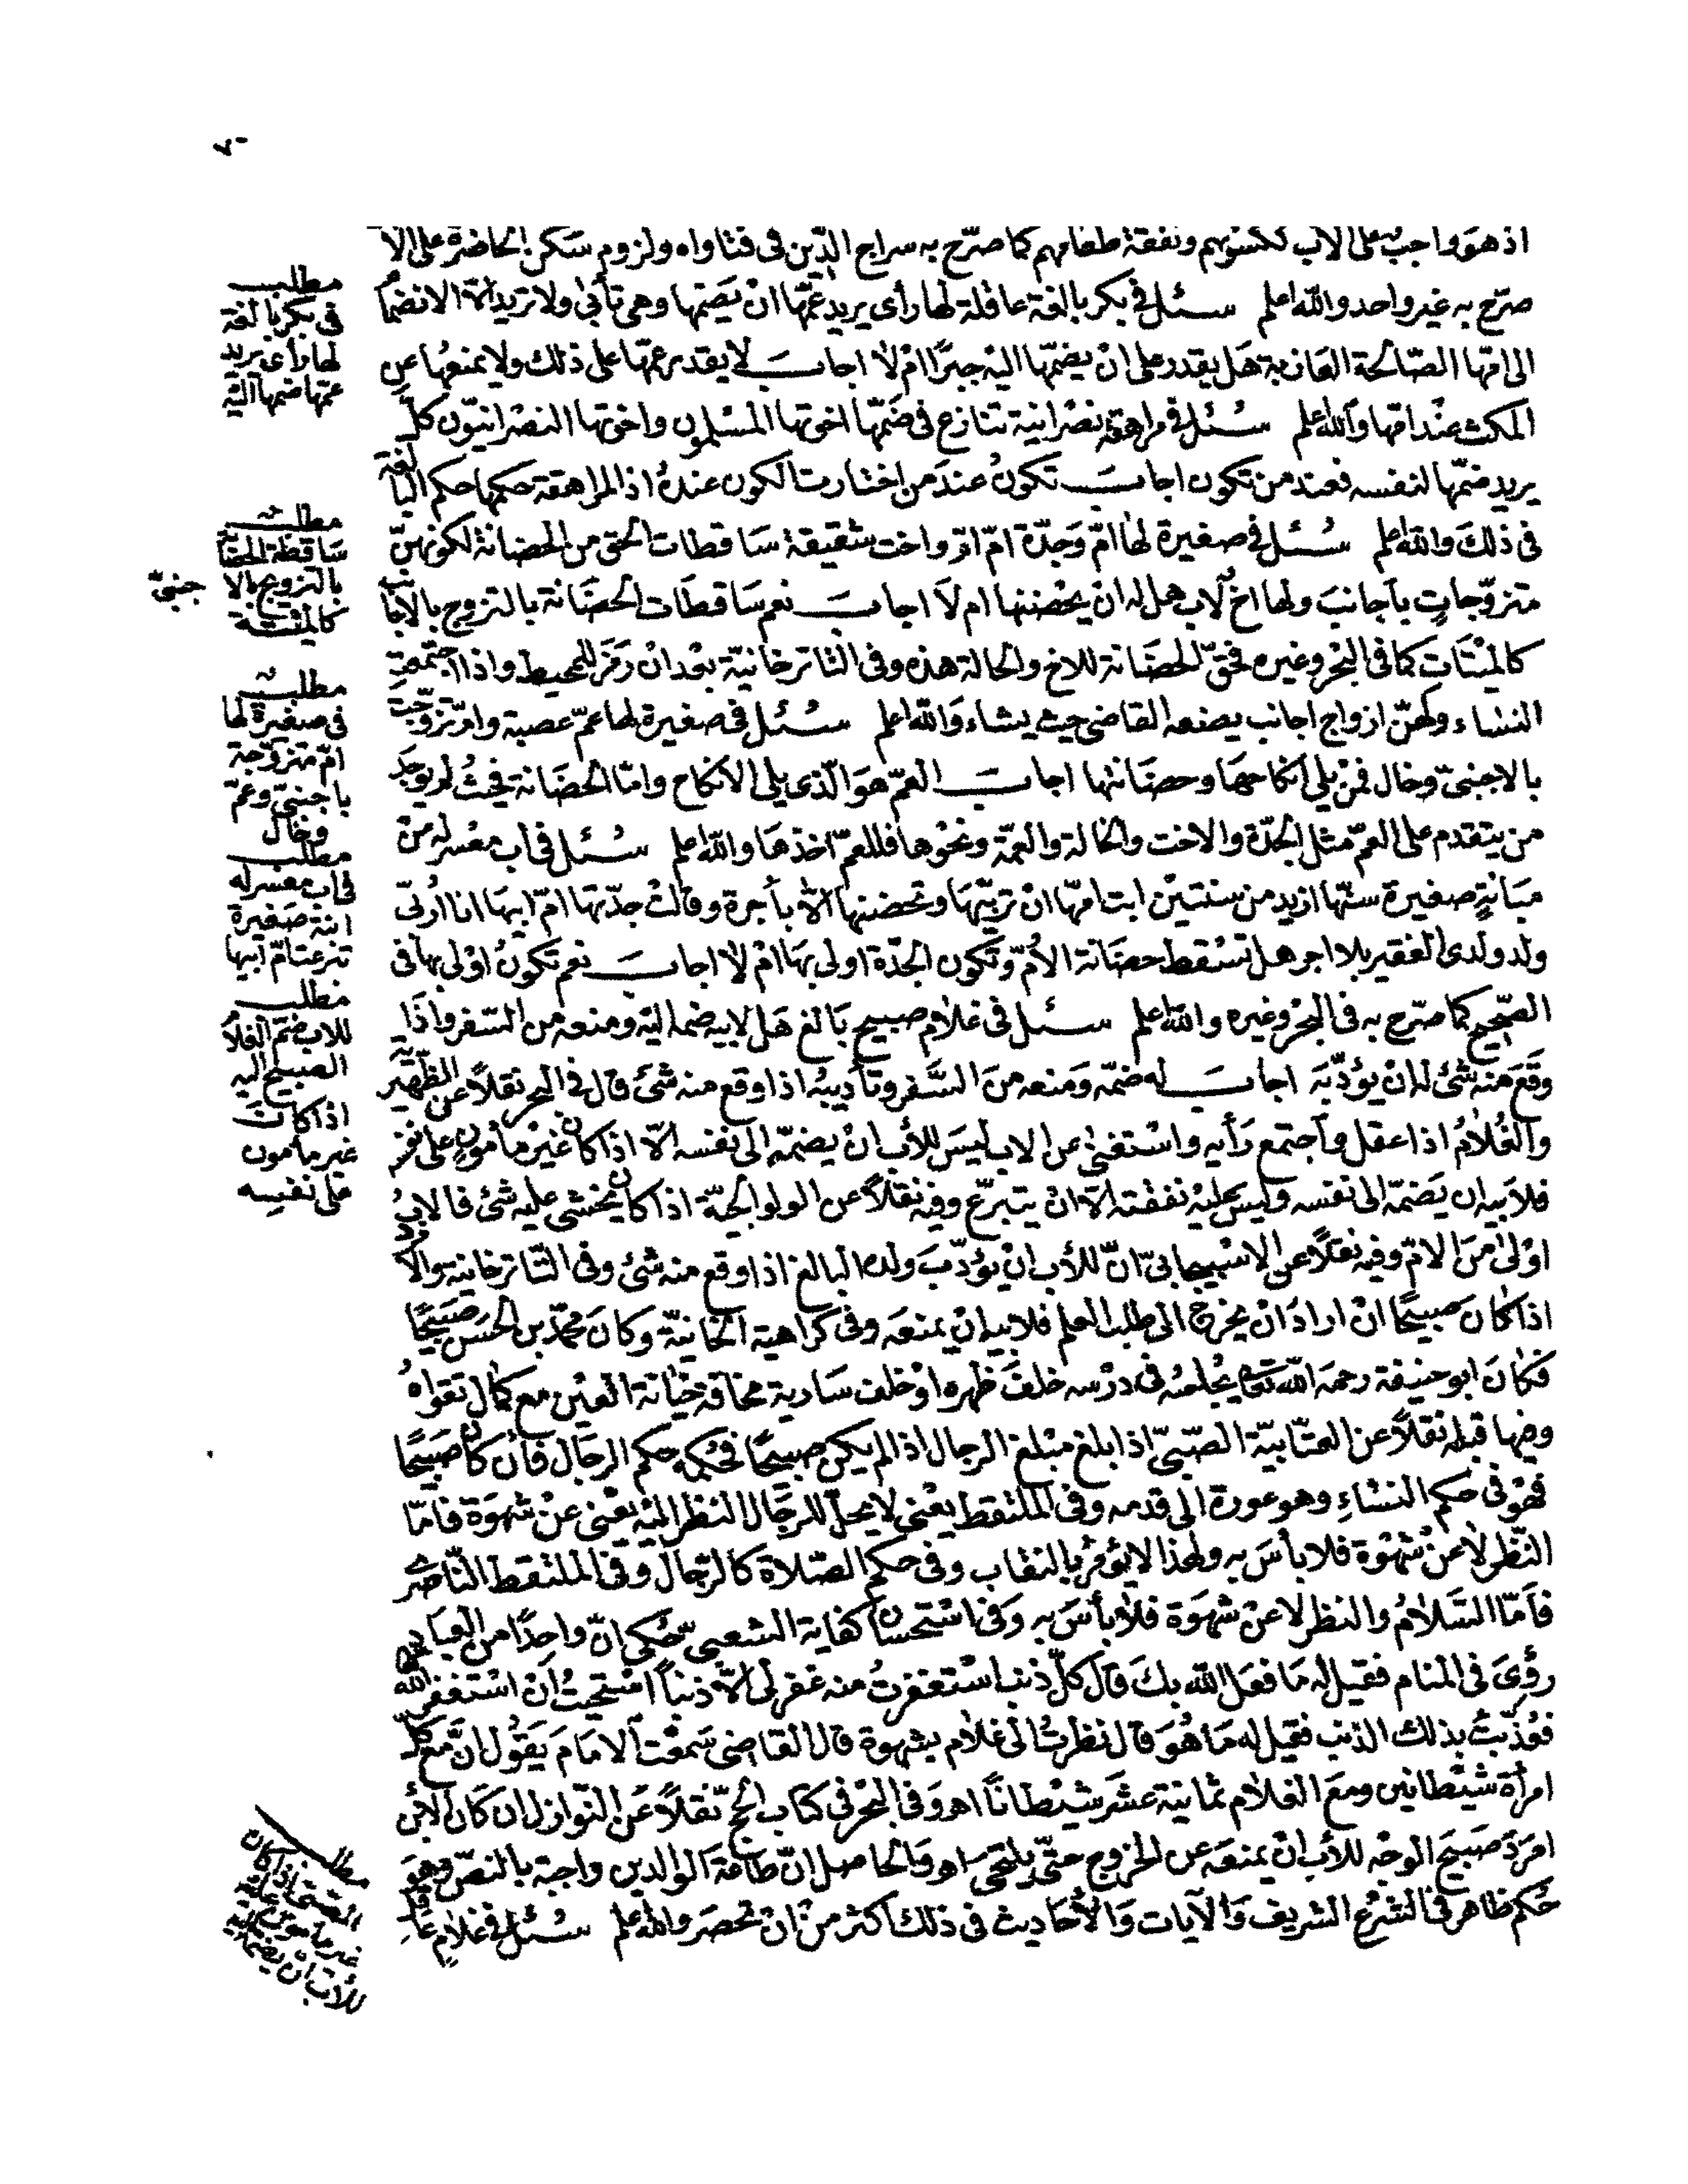 ٧٠
اذ هو واجب على الاب ككسوتهم ونفقة طعامهم كما صرّح به سراج الدّين فى فتاواه ولزوم سكن الحاضنة على الا
صرّح به غير واحد والله اعلم سئل فى بكر بالغة عاقلة لها رأى يريد عمّها انْ يَضمّها وهى تأبى ولا تريد الّا الانضمام
الى امّها الصّالحة العازبة هَل يقدر على انْ يضمّها اليْه جبرًا امْ لا اجابَ لا يقدر عمّها على ذلك ولا يمنعُها عن
المكث عنْد امّها والله اعلم سُئل فى مراهقة نصْرانية تنازع فى ضمّها اخوتها المسْلمون واخوتها النصْرانيّون كلّ
يريد ضمّها لنفسه فعند من تكون اجابَ تكونُ عندَ من اختارت الكون عندهُ اذ المراهقة حكمها حكم البالغة
فى ذلكَ والله اعلم سُئل فى صغيرة لها امّ وَجدّة امّ امّ واخت شقيقة سَاقطات الحقّ من الحضانة لكونهنّ
متزوّجاتٍ باجانبَ ولها اخ لاب هل له ان يحْضنها ام لَا اجابَ نعم سَاقطَات الحضَانة بالتزوج بالاجانب
كالميْتَات كما فى البحْر وغيره فحقّ الحضَانة للاخ والحالة هَذه وفى التّاترخانيّة بعْد انْ رَمَزَ للمحيط واذا اجتمعتِ
النسَاء ولهنّ ازواج اجانب يصنعه القاضى حيث يشاء وَالله اعلم سُئل فى صغيرة لها عمّ عصبة وامّ تزوّجت
بالاجنبىّ وخال فمنْ يلى انكاحهَا وحضَانتها اجابَ العمّ هوَ الّذى يلى الانكاح وامّا الحضَانة فحيْثُ لم يوجَد
من يتقدم على العمّ مثل الجدّة والاخت والخالة والعمّة ونحْوها فللعمّ اخذهَا والله اعلم سُئل فى اب معْسر له منْ
مبَانةٍ صغيرة سنّها ازيد من سنتيْن ابت امّها انْ تربّيهَا وتحضنها الّا بأجرة وقالتْ جدّتها امّ ابيهَا انا اربّى
ولد ولدى الفقير بلا اجر هل تسْقط حضَانة الاُمّ وتكون الجدّة اولى بهَا امْ لا اجابَ نعم تكونُ اوْلى بها فى
الصّحيح كما صرّح به فى البحْر وغيره والله اعلم سئل فى غلام صبيح بَالغ هَل لابيه ضمه اليْه ومنعه من السّفر واذَا
وقعَ منه شئ له انْ يؤدّبَه اجابَ له ضمّه وَمنعه منَ السَّفر وتأديبهُ اذا وقع منه شئ قال فى البحر نقلاً عن الظهيريّة
والغُلامُ اذا عقل واجتمع رَأيه واسْتغنى عن الاب ليسَ للأب انْ يضمّه الى نفسه الّا اذا كان غيْر مأمونٍ على نفسه
فلابيه ان يَضمّه الى نفسه وليسَ عليْه نفقته الّا انْ يتبرّع وفيْه نقلاً عن الولوالجيّة اذا كان يخشى عليه شئ فالابُ
اوْلى منَ الامّ وفيه نقلاً عن الاسْبيجابىّ انّ للأب انْ يؤدّبَ ولده البالغ اذا وقع منه شئ وفى التّاترخانيه والامرد
اذا كانَ صبيحًا انْ ارادَ انْ يخرج الى طلب العلم فلابيه ان يمنعَه وفى كراهية الخانيّة وكانَ محمّد بن الحسَن صَبيحًا
فكانَ ابو حنيفة رحمَه الله تعالى يجْلسُه فى درْسه خلفَ ظهره اوْ خلف سَارية مخافة خيَانة العيْن مع كمال تقوَاهُ
وفيها قبله نقلاً عن العتّابيّة الصّبىّ اذا بلغ مبْلغ الرجال اذا لم يكن صبيحًا فحُكمه حكم الرجَال فان كانَ صَبيحًا
فهوَ فى حكم النسَاءِ وهو عورة الى قدمه وفى الملتقط يعْنى لا يحلّ للرجَال النظر اليْه يعْنى عنْ شهوَة فامّا
النّظر لا عنْ شهْوة فلا بأسَ به ولهذا لا يؤمَر بالنقاب وفى حكم الصّلاة كالرّجال وفى الملتقط النّاصرى
فامّا السَّلامُ والنظر لا عنْ شهوَة فلا بأسَ به وَفى اسْتحسَان كفاية الشعبىّ حُكى انّ واحِدًا من العبّاد
رؤىَ فى المنام فقيل له مَا فعَل الله بكَ قال كلّ ذنب اسْتغفرتُ منه غفر لى الّا ذنباً اسْتحيتُ انْ اسْتغفر الله
فعُذّبتُ بذلك الذنب فقيل له مَا هُوَ قال نظرتُ الى غلام بشهوة قال القاضى سَمعْت الامَامَ يَقُول انَّ مع كلّ
امرأة شيْطانين ومعَ الغلام ثمانية عشَر شيْطاناً اهـ وَفى البحْر فى كتاب الحجّ نقلاً عَن النّوازل ان كانَ الابن
امرَدَ صَبيحَ الوجْه للأب انْ يمنعَه عن الخروج حتّى يلتحىَ اهـ وَالحاصل انّ طاعَة الوالدين واجبة بالنصّ وهوَ
حُكم ظاهر فى الشرْع الشريف وَالآيات وَالأحَاديث فى ذلك اكثر منْ انْ تحْصَر والله اعلم سُئل فى غلام عاقل
مطلب
فى بكر بالغة
لها رأى يريد
عمّها ضمها اليْه
مطلب
سَاقطة الحضَانة
بالتزوج بالاجنبىّ
كالميْتة
مطلب
فى صغيرة لها
امّ متزوّجة
باجنبىّ وعمّ
وخال
مطلب
فى اب معْسر له
ابنة صَغيرة
امّ ابيها
مطلب
للاب ضمّ الغلام
الصبيح اليه
اذا كانَ
غير مامون
على نفسِه
مطلب
الصّبىّ اذا كان
غير مأمون
للأب انْ يضمه اليه